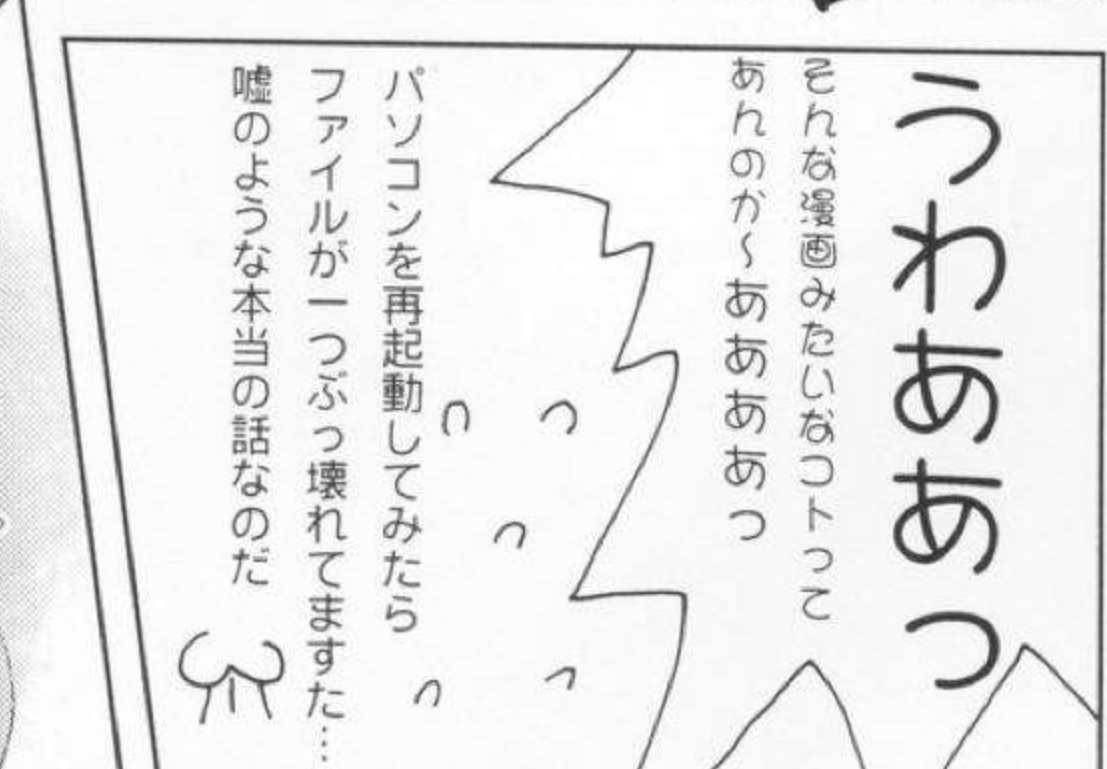 うわああっ
そんな漫画みたいなコトって
あんのか～ああああっ
パソコンを再起動してみたら
ファイルが一つぶっ壊れてますた…
嘘のような本当の話なのだ